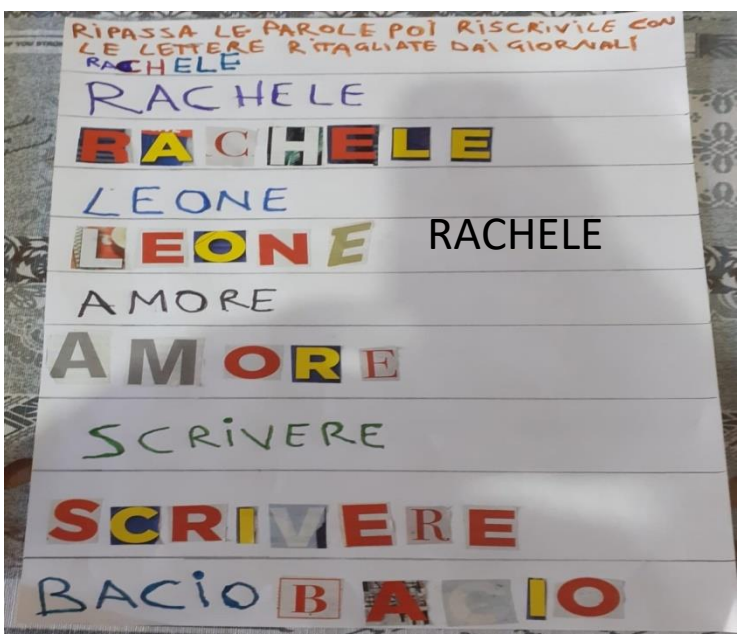 RIPASSA LE PAROLE POI RISCRIVILE CON
LE LETTERE RITAGLIATE DAI GIORNALI
RACHELE
RACHELE
RACHELE
LEONE
LEONE
RACHELE
AMORE
AMORE
SCRIVERE
SCRIVERE
BACIO BACIO